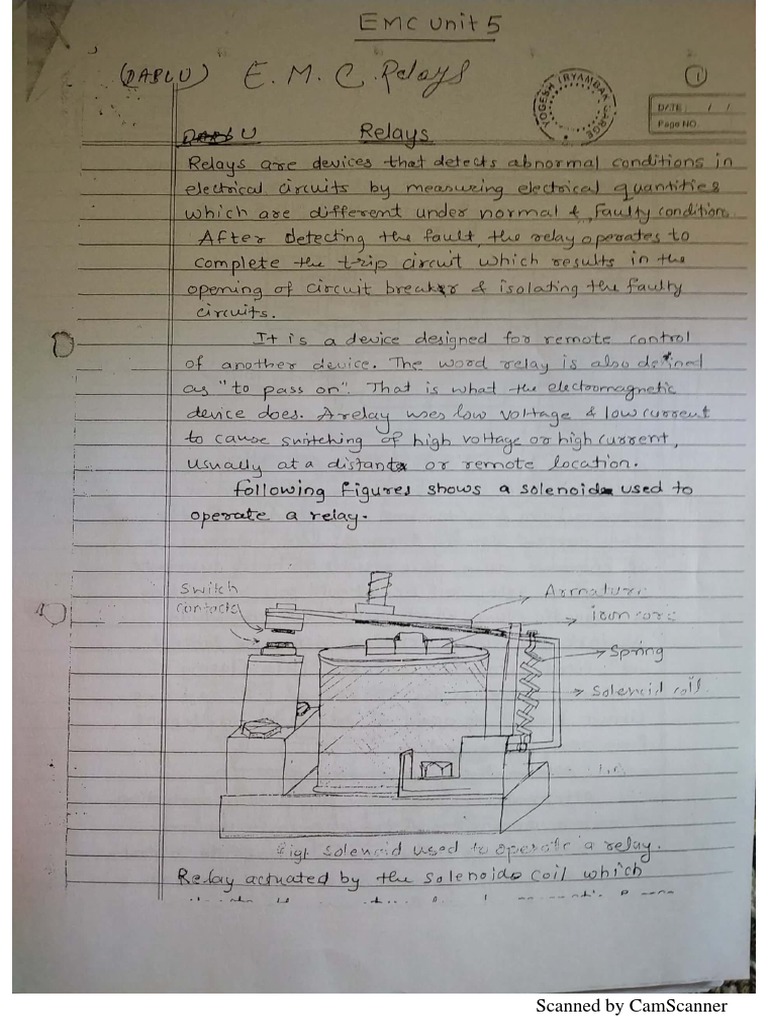 EMC Unit 5
(DABLU) E. M. C. Relays
1
YOGESH TRYAMBAK
DATE: / /
Page NO.
Relays
Relays are devices that detects abnormal conditions in
electrical circuits by measuring electrical quantities
which are different under normal & faulty condition.
After detecting the fault, the relay operates to
complete the trip circuit which results in the
opening of circuit breaker & isolating the faulty
circuits.
It is a device designed for remote control
of another device. The word relay is also defined
as "to pass on". That is what the electromagnetic
device does. A relay uses low voltage & low current
to cause switching of high voltage or high current,
usually at a distant or remote location.
Following figures shows a solenoid used to
operate a relay.
Switch
contacts
Armature
iron core
Spring
Solenoid coil
Fig. Solenoid used to operate a relay.
Relay actuated by the solenoid coil which
Scanned by CamScanner